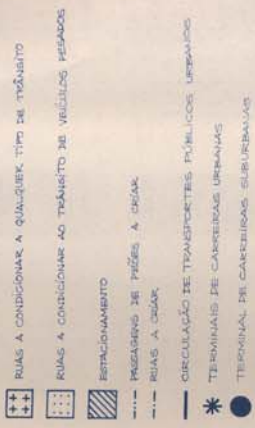 RUAS A CONDICIONAR A QUALQUER TIPO DE TRÂNSITO
RUAS A CONDICIONAR AO TRÂNSITO DE VEÍCULOS PESADOS
ESTACIONAMENTO
PASSAGENS DE PEÕES A CRIAR
RUAS A CRIAR
CIRCULAÇÃO DE TRANSPORTES PÚBLICOS URBANOS
TERMINAIS DE CARREIRAS URBANAS
TERMINAL DE CARREIRAS SUBURBANAS